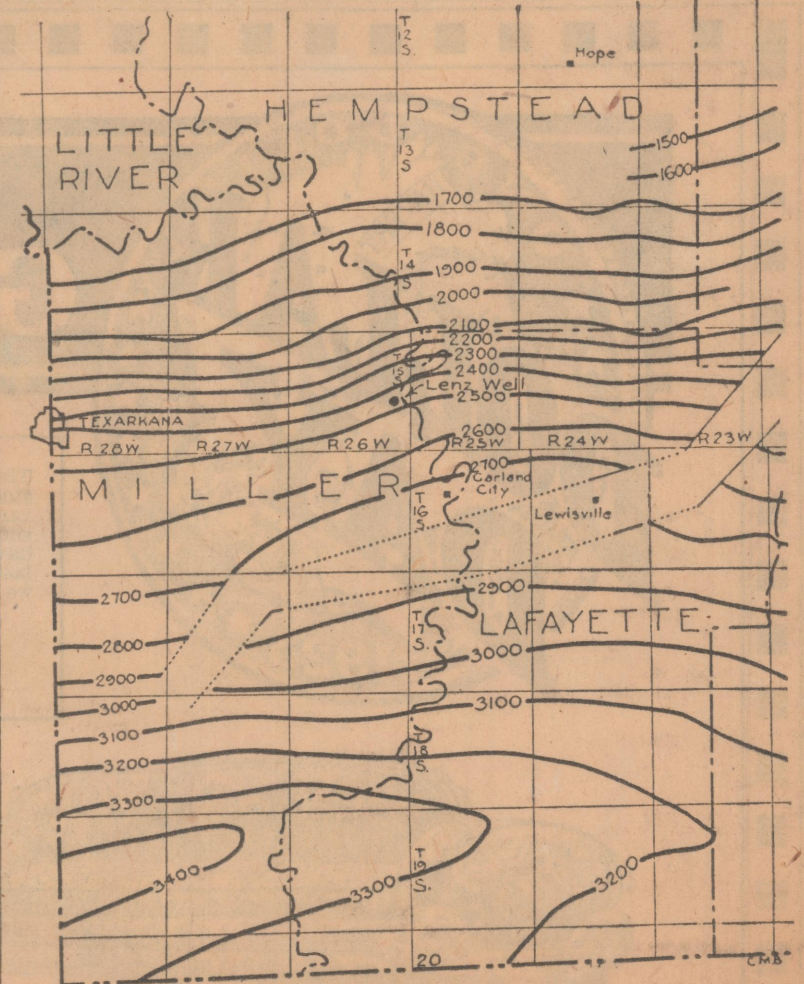 T
12
S.
Hope
HEMPSTEAD
LITTLE
RIVER
T
13
S
1500
1600
1700
1800
T
14
S
1900
2000
2100
2200
2300
T
15
S
2400
Lenz Well
2500
TEXARKANA
2600
R28W
R27W
R26W
R25W
R24W
R23W
2700
MILLER
Garland
City
T
16
S
Lewisville
2700
2900
T
17
S.
LAFAYETTE
2800
3000
2900
3000
3100
3100
T
18
S.
3200
3300
T
19
S.
3400
3300
3200
20
CMB